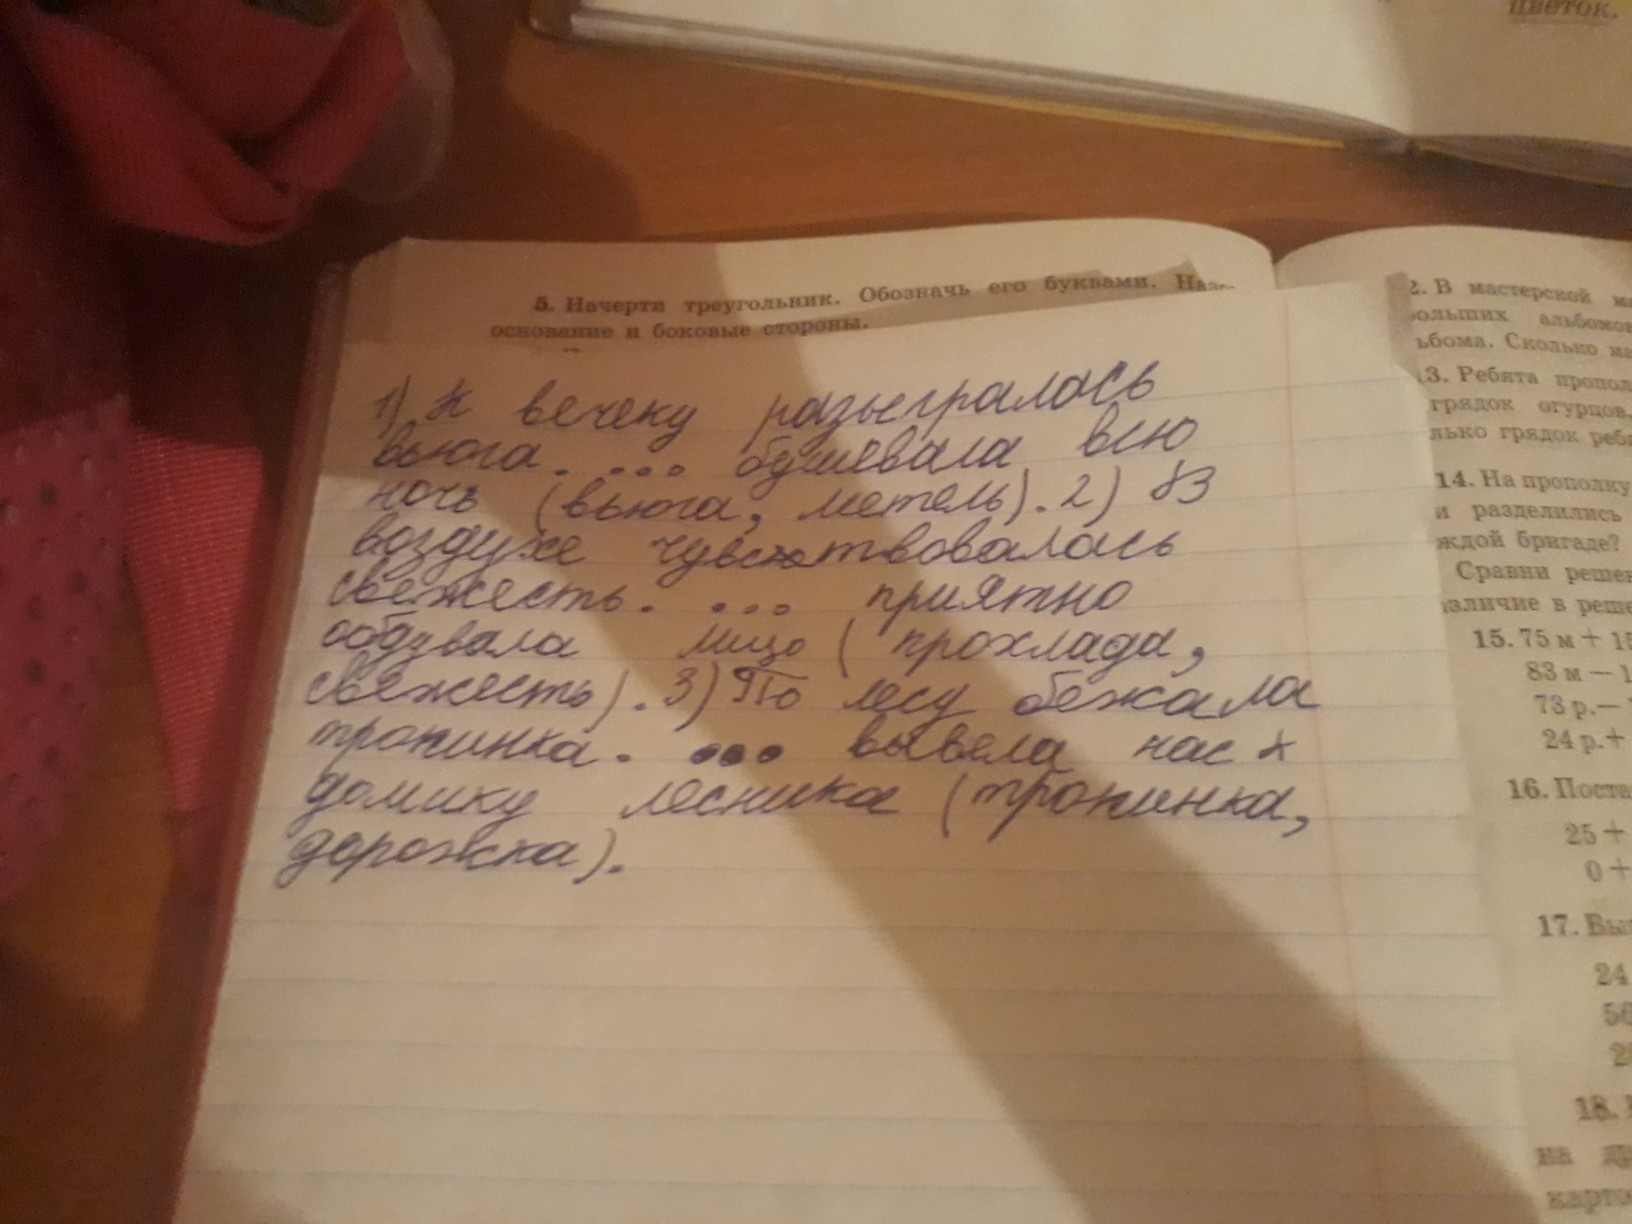 цветок.
5. Начерти треугольник. Обозначь его буквами. Назо-
основание и боковые стороны.
1) К вечеку разыгралась
вьюга. ... бушевала всю
ночь (вьюга, метель). 2) В
воздухе чувствовалась
свежесть. ... приятно
обдувала лицо (прохлада,
свежесть). 3) По лесу бежала
тропинка. ... вывела нас к
домику лесника (тропинка,
дорожка).
2. В мастерской
ольших альбомов
ьбома. Сколько
13. Ребята пропол
грядок огурцов,
лько грядок
14. На прополку
и разделились
ждой бригаде?
Сравни решен
азличие в реше
15. 75 м + 15
83 м — 1
73 р.—
24 р.+
16. Поста
25 +
0 +
17. Вы
24
56
18.
на
карто